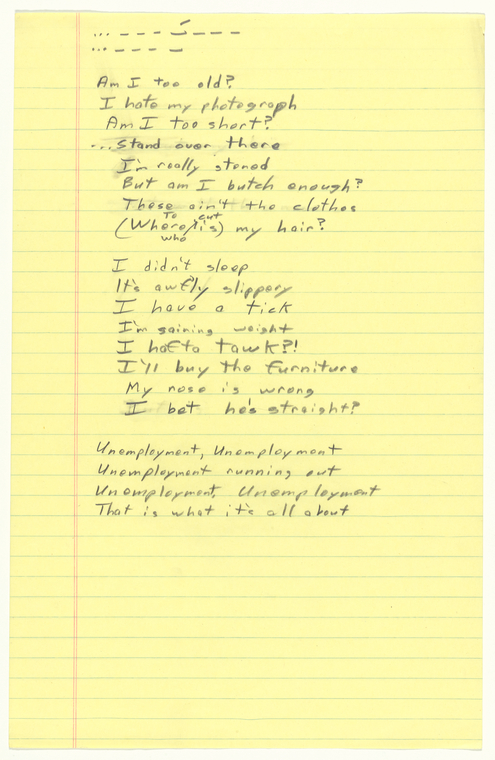 Am I too old?
I hate my photograph
Am I too short?
...Stand over there
I'm really stoned
But am I butch enough?
These ain't the clothes
To cut
(Where/is) my hair?
who
I didn't sleep
It's awfly slippery
I have a tick
I'm gaining weight
I hafta tawk?!
I'll buy the furniture
My nose is wrong
I bet he's straight?
Unemployment, Unemployment
Unemployment running out
Unemployment, Unemployment
That is what it's all about